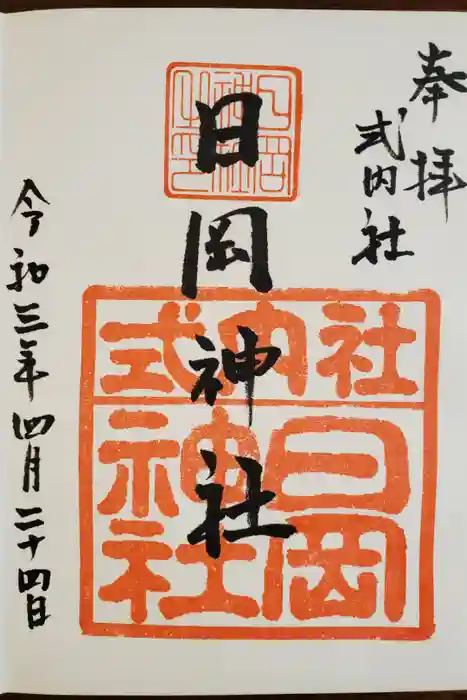 奉拝
式内社
日岡神社
令和三年四月二十四日
日岡神社之印
式内社
日岡神社